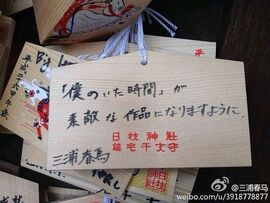 「僕のいた時間」が
素敵な作品になりますように.
日枝神社
鎮宅干支守
三浦春馬
平成二十六年
@三浦春马
weibo.com/u/3918778877